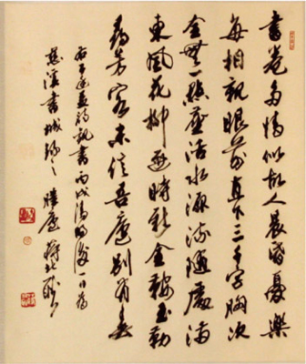 書卷多情似故人晨昏憂樂
每相親眼前直下三千字胸次
全無一點塵活水源流隨處滿
東風花柳逐時新金鞍玉勒
尋芳客未信吾廬別有春
右于廷益詩觀書丙戌清明後一日為
慈溪書城